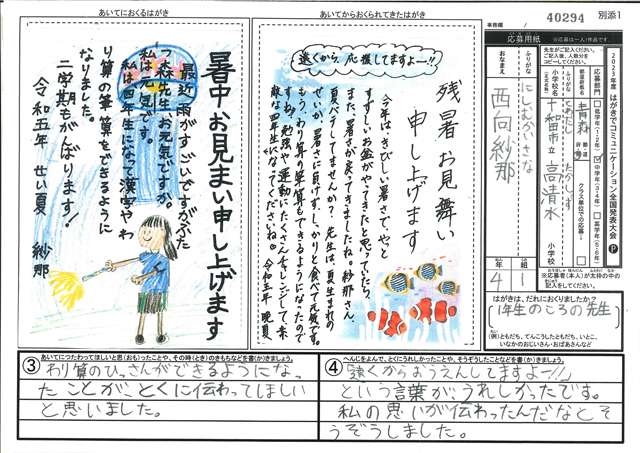 あいてにおくるはがき
暑中お見まい申し上げます
最近雨がすごいですがふた
つ森先生お元気ですか。
私は元気です。
私は四年生になって漢字やわ
り算の筆算をできるように
なりました。
二学期もがんばります！
令和五年 せい夏 紗那
あいてからおくられてきたはがき
遠くから、応援してますよー!!
残暑お見舞い
申し上げます
今年はきびしい暑さで、やっと
すずしいお盆がやってきたと思っていたら
また、暑さが戻ってきましたね。紗那さん、
夏バテしてませんか？ 先生は、夏生まれの
せいか、暑さに負けず、しっかりと食べて元気です。
もう、わり算の筆算もできるようになったので
すね。勉強や運動にたくさんチャレンジして、素
敵な四年生になってくださいね。 令和五年 晩夏
事務欄
40294
別添1
応募用紙
※応募は一人1作品です。
先生がご記入ください。
ご記入後、人数分を
コピーしてください。
2023年度 はがきでコミュニケーション全国発表大会
応募部門
低学年(1・2年)
中学年(3・4年)
高学年(5・6年)
都道府県名
青森
クラス単位での応募
ふりがな
とわだし たかしず
小学校名
(正式名称)
十和田市立 高清水
小学校
ふりがな
にしむかいさな
おなまえ
西向紗那
年 組
4 1
※応募者(本人)が太枠の中の
記入をしてください。
はがきは、だれにおくりましたか？
(1年生のころの先生)
(例)ともだち、てんこうしたともだち、いとこ、
いなかのおじいさん・おばあさんなど
③ あいてにつたわってほしいと思(おも)ったことや、その時(とき)のきもちなどを書(か)きましょう。
わり算のひっさんができるようになっ
たことが、とくに伝わってほしい
と思いました。
④ へんじをよんで、とくにうれしかったことや、そうぞうしたことなどを書(か)きましょう。
「遠くからおうえんしてますよー!!」
という言葉が、うれしかったです。
私の思いが伝わったんだなとそ
うぞうしました。